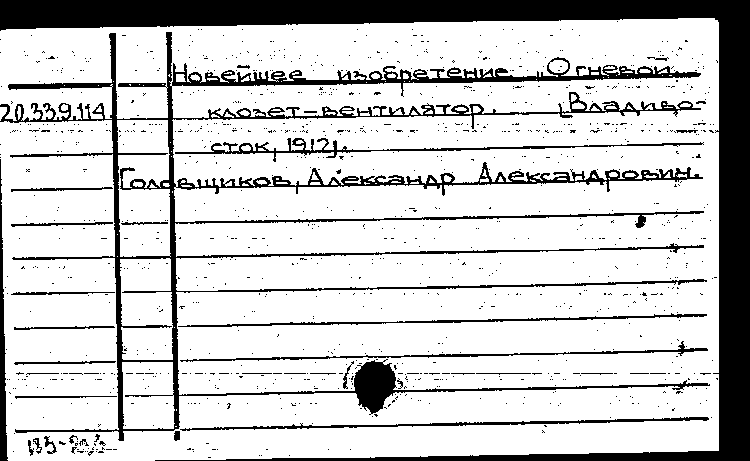 Новейшее изобретение „Огневой
20.339.114. клозет-вентилятор. [Владиво-
сток, 1912].
Головщиков, Александр Александрович.